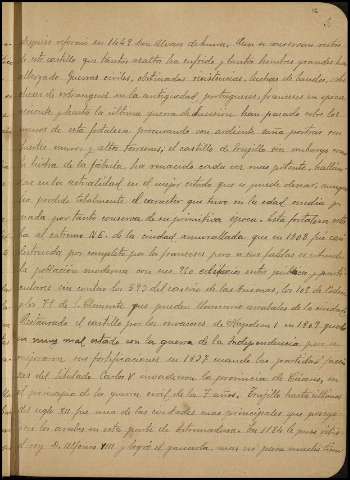 después reformó en 1442 Don Alvaro de Luna. Aun se conservan restos
de este castillo que tantos asaltos ha sufrido y tantos hombres grandes ha
albergado. Guerras civiles, obstinadas resistencias, luchas de bandos,
de extrangeros en la antigüedad, portugueses, franceses en época
reciente y hasta la última guerra de sucesion han pasado sobre los
muros de esta fortaleza procurando con ardiente saña postrar sus
fuertes muros y altos torreones, el castillo de Trujillo sin embargo como
la hidra de la fábula ha renacido cada vez mas potente, hallán-
dose en la actualidad en el mejor estado que se puede desear, aunque
ha perdido totalmente el caracter que tuvo en la edad media y
nada por tanto conserva de su primitiva época. Esta fortaleza está
al extremo N.E. de la ciudad amurallada que en 1808 fué casi
destruida por completo por los franceses pero a sus faldas se extiende
la poblacion moderna con sus 710 edificios entre públicos y parti-
culares sin contar los 593 del caserío de las Huertas, los 108 de
y los 77 de S. Clemente que pueden llamarse arrabales de la ciudad.
Restaurado el castillo por los invasores de Napoleon I en 1809 quedó
en muy mal estado con la guerra de la Independencia pero se
mejoraron sus fortificaciones en 1837 cuando las partidas
del titulado Carlos V invadieron la provincia de Cáceres, en
el principio de la guerra civil de los 7 años. Trujillo hasta últimos
del siglo XII fué una de las ciudades mas principales que poseye-
ron los árabes en esta parte de Estremadura. En 1184 le puso sitio
el rey D. Alfonso VIII y logró el ganarla, mas no para mucho tiem-